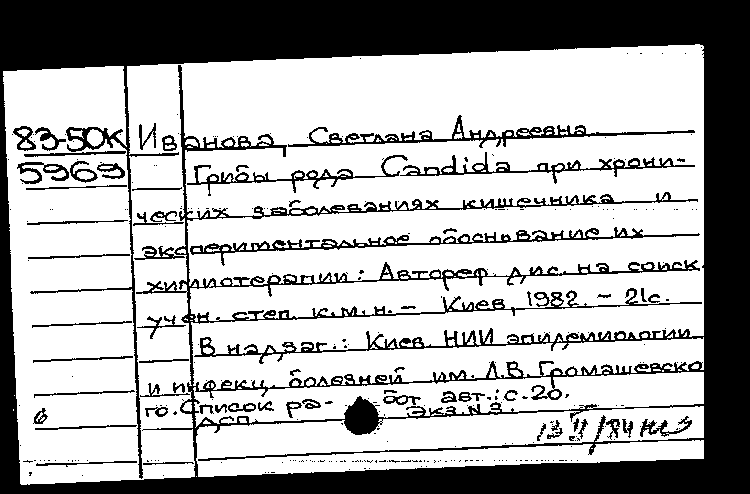 83-50К Иванова, Светлана Андреевна
5969 Грибы рода Candida при хрони-
ческих заболеваниях кишечника и
экспериментальное обоснвание их
химиотерапии: Автореф. дис. на соиск.
учен. степ. к.м.н. – Киев, 1982. – 21с.
В надзаг.: Киев. НИИ эпидемиологии
и инфекц. болезней им. Л.В. Громашевско
го. Список ра- бот авт.: с. 20.
6 ДСП. Экз. N 3.
13 II/84